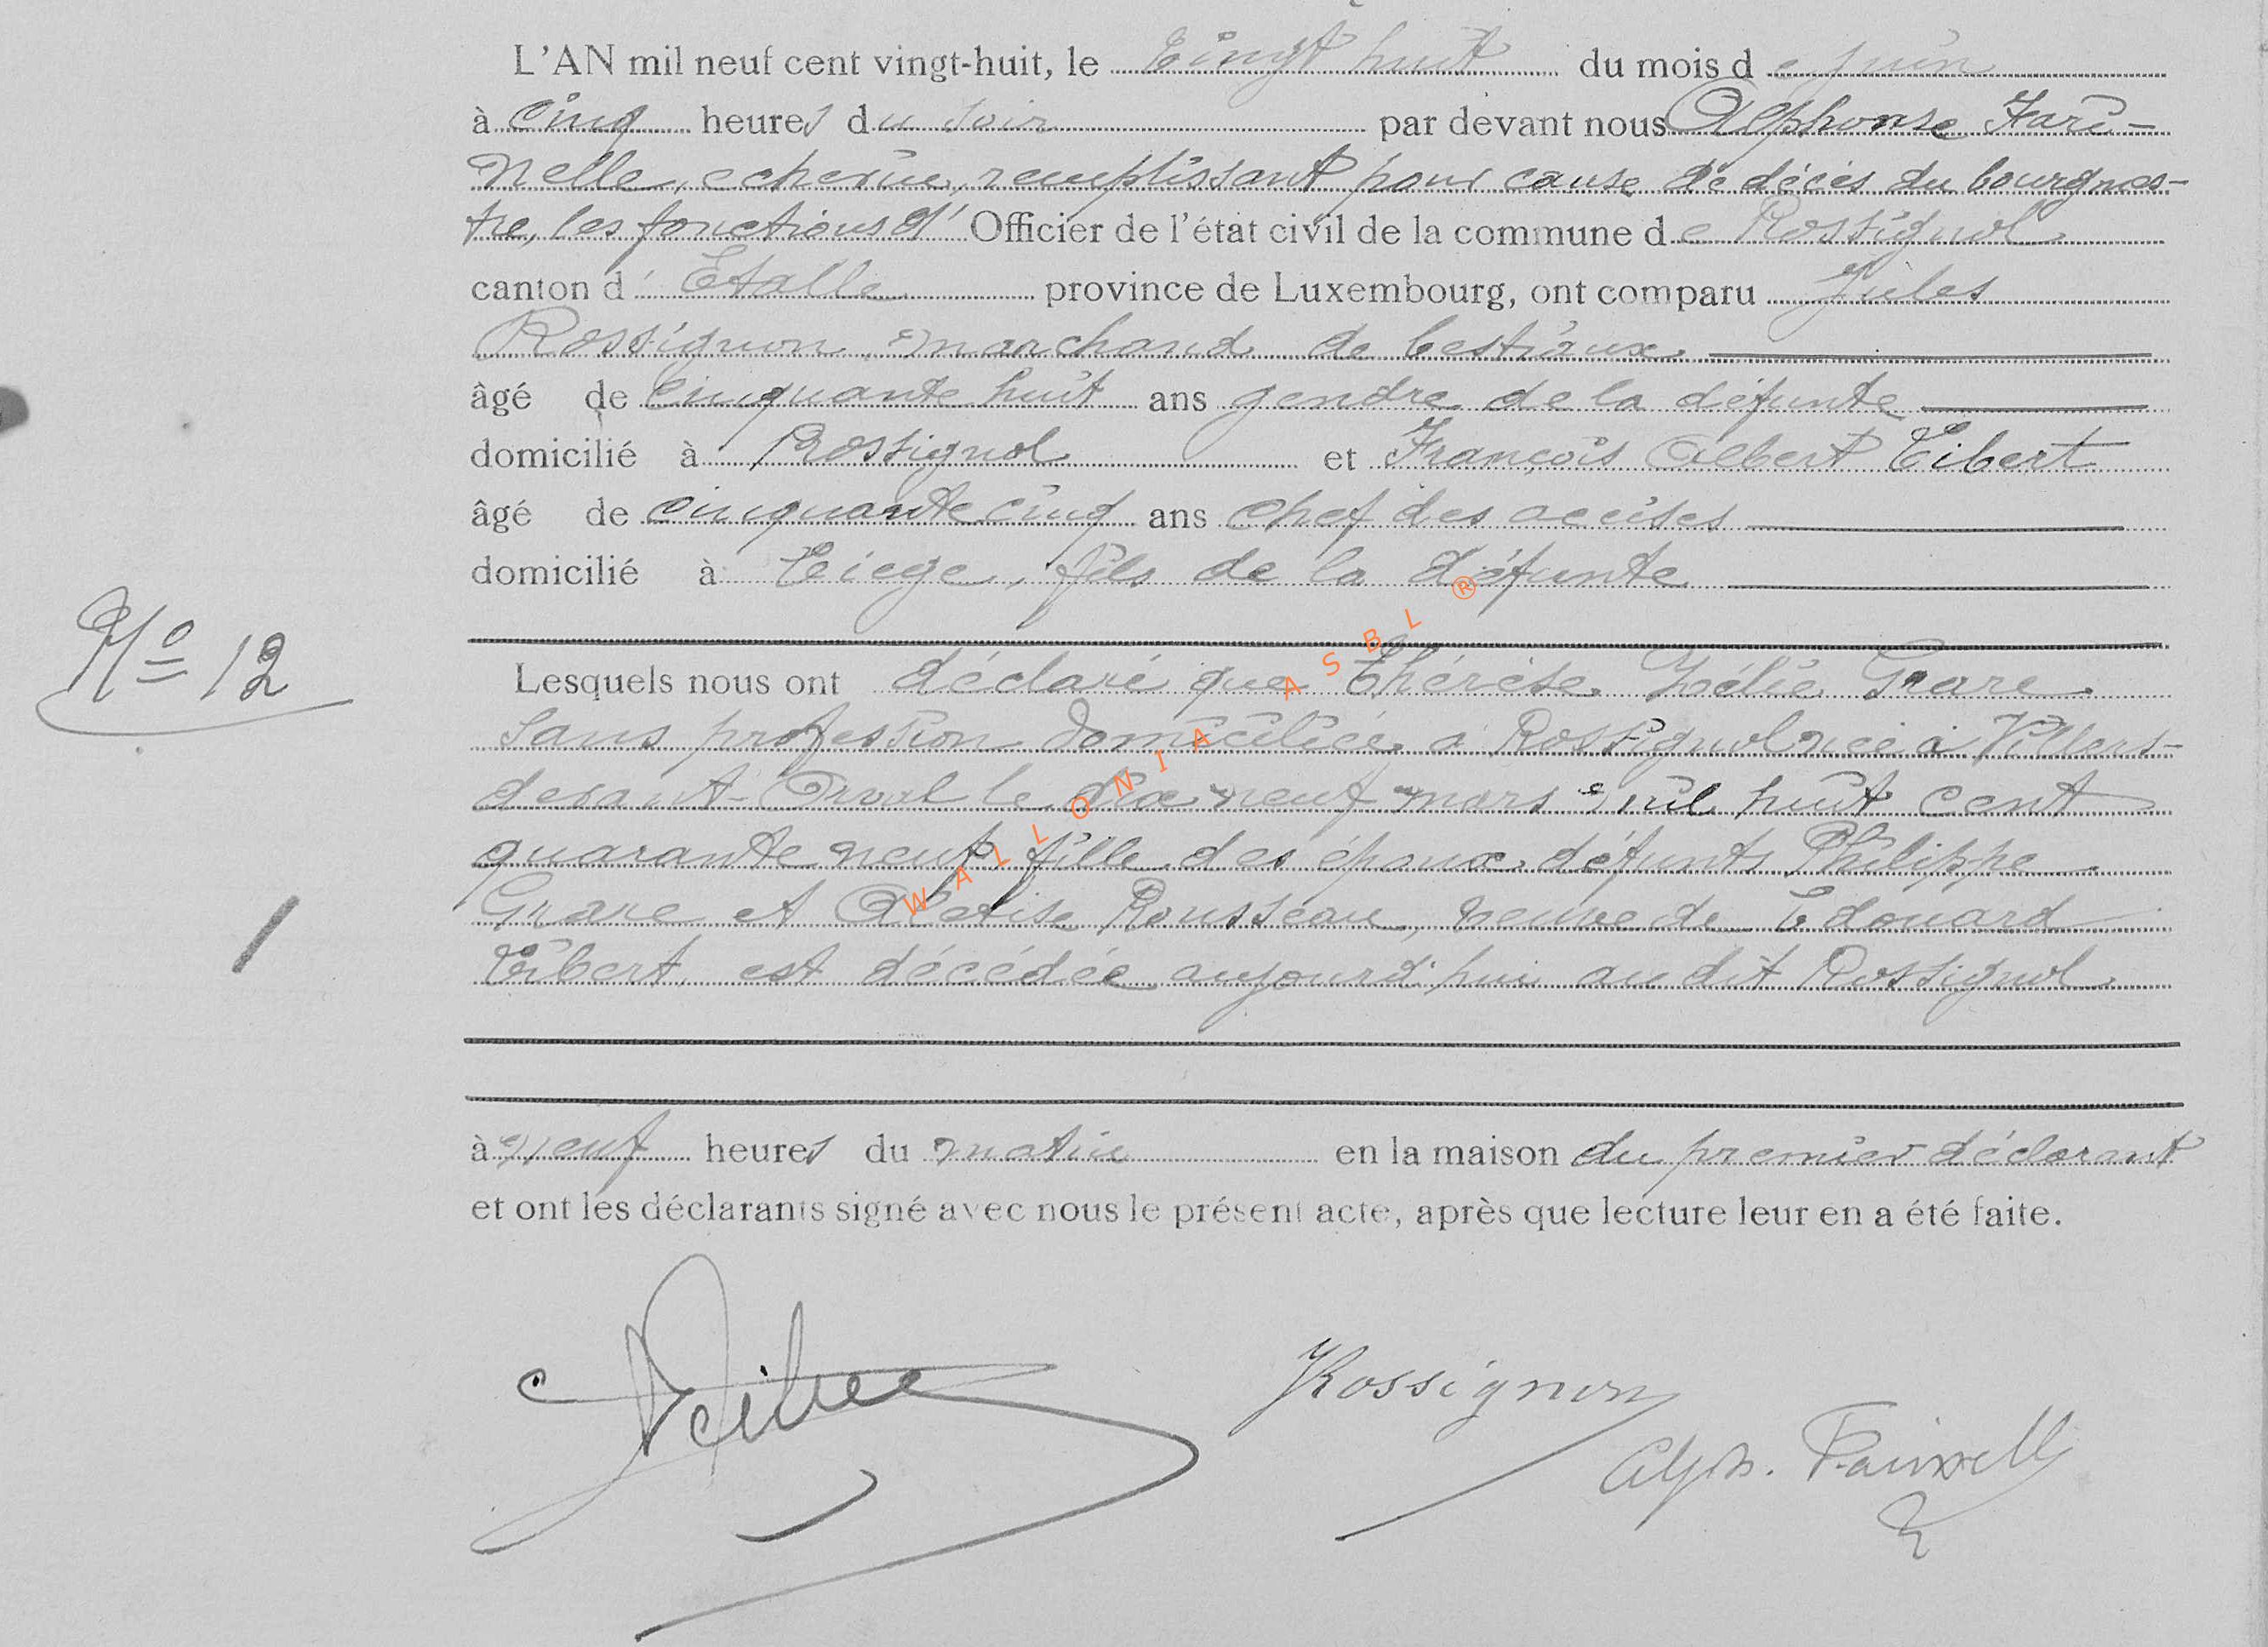 L'AN mil neuf cent vingt-huit, le vingt huit du mois de juin
à cinq heures du soir par devant nous Alphonse Fari-
nelle, echevin, remplissant pour cause de décès du bourgmes-
tre, les fonctions d' Officier de l'état civil de la commune de Rossignol
canton d' Etalle province de Luxembourg, ont comparu Jules
Rossignon marchand de bestiaux
âgé de cinquante huit ans gendre de la défunte
domicilié à Rossignol et François Albert Tibert
âgé de cinquante cinq ans chef des accises
domicilié à Liege, fils de la défunte
No 12
Lesquels nous ont déclaré que Thérèse Zélie Grare
sans profession domiciliée à Rossignol née à Villers-
devant-Orval le dix neuf mars mil huit cent
quarante neuf fille des époux défunts Philippe
Grare et Rousseau, veuve de Edouard
Tibert, est décédée aujourd'hui au dit Rossignol
à neuf heures du matin en la maison du premier déclarant
et ont les déclarants signé avec nous le présent acte, après que lecture leur en a été faite.
JRossignon
Alph. Farinelle
WALLONIA ASBL ®